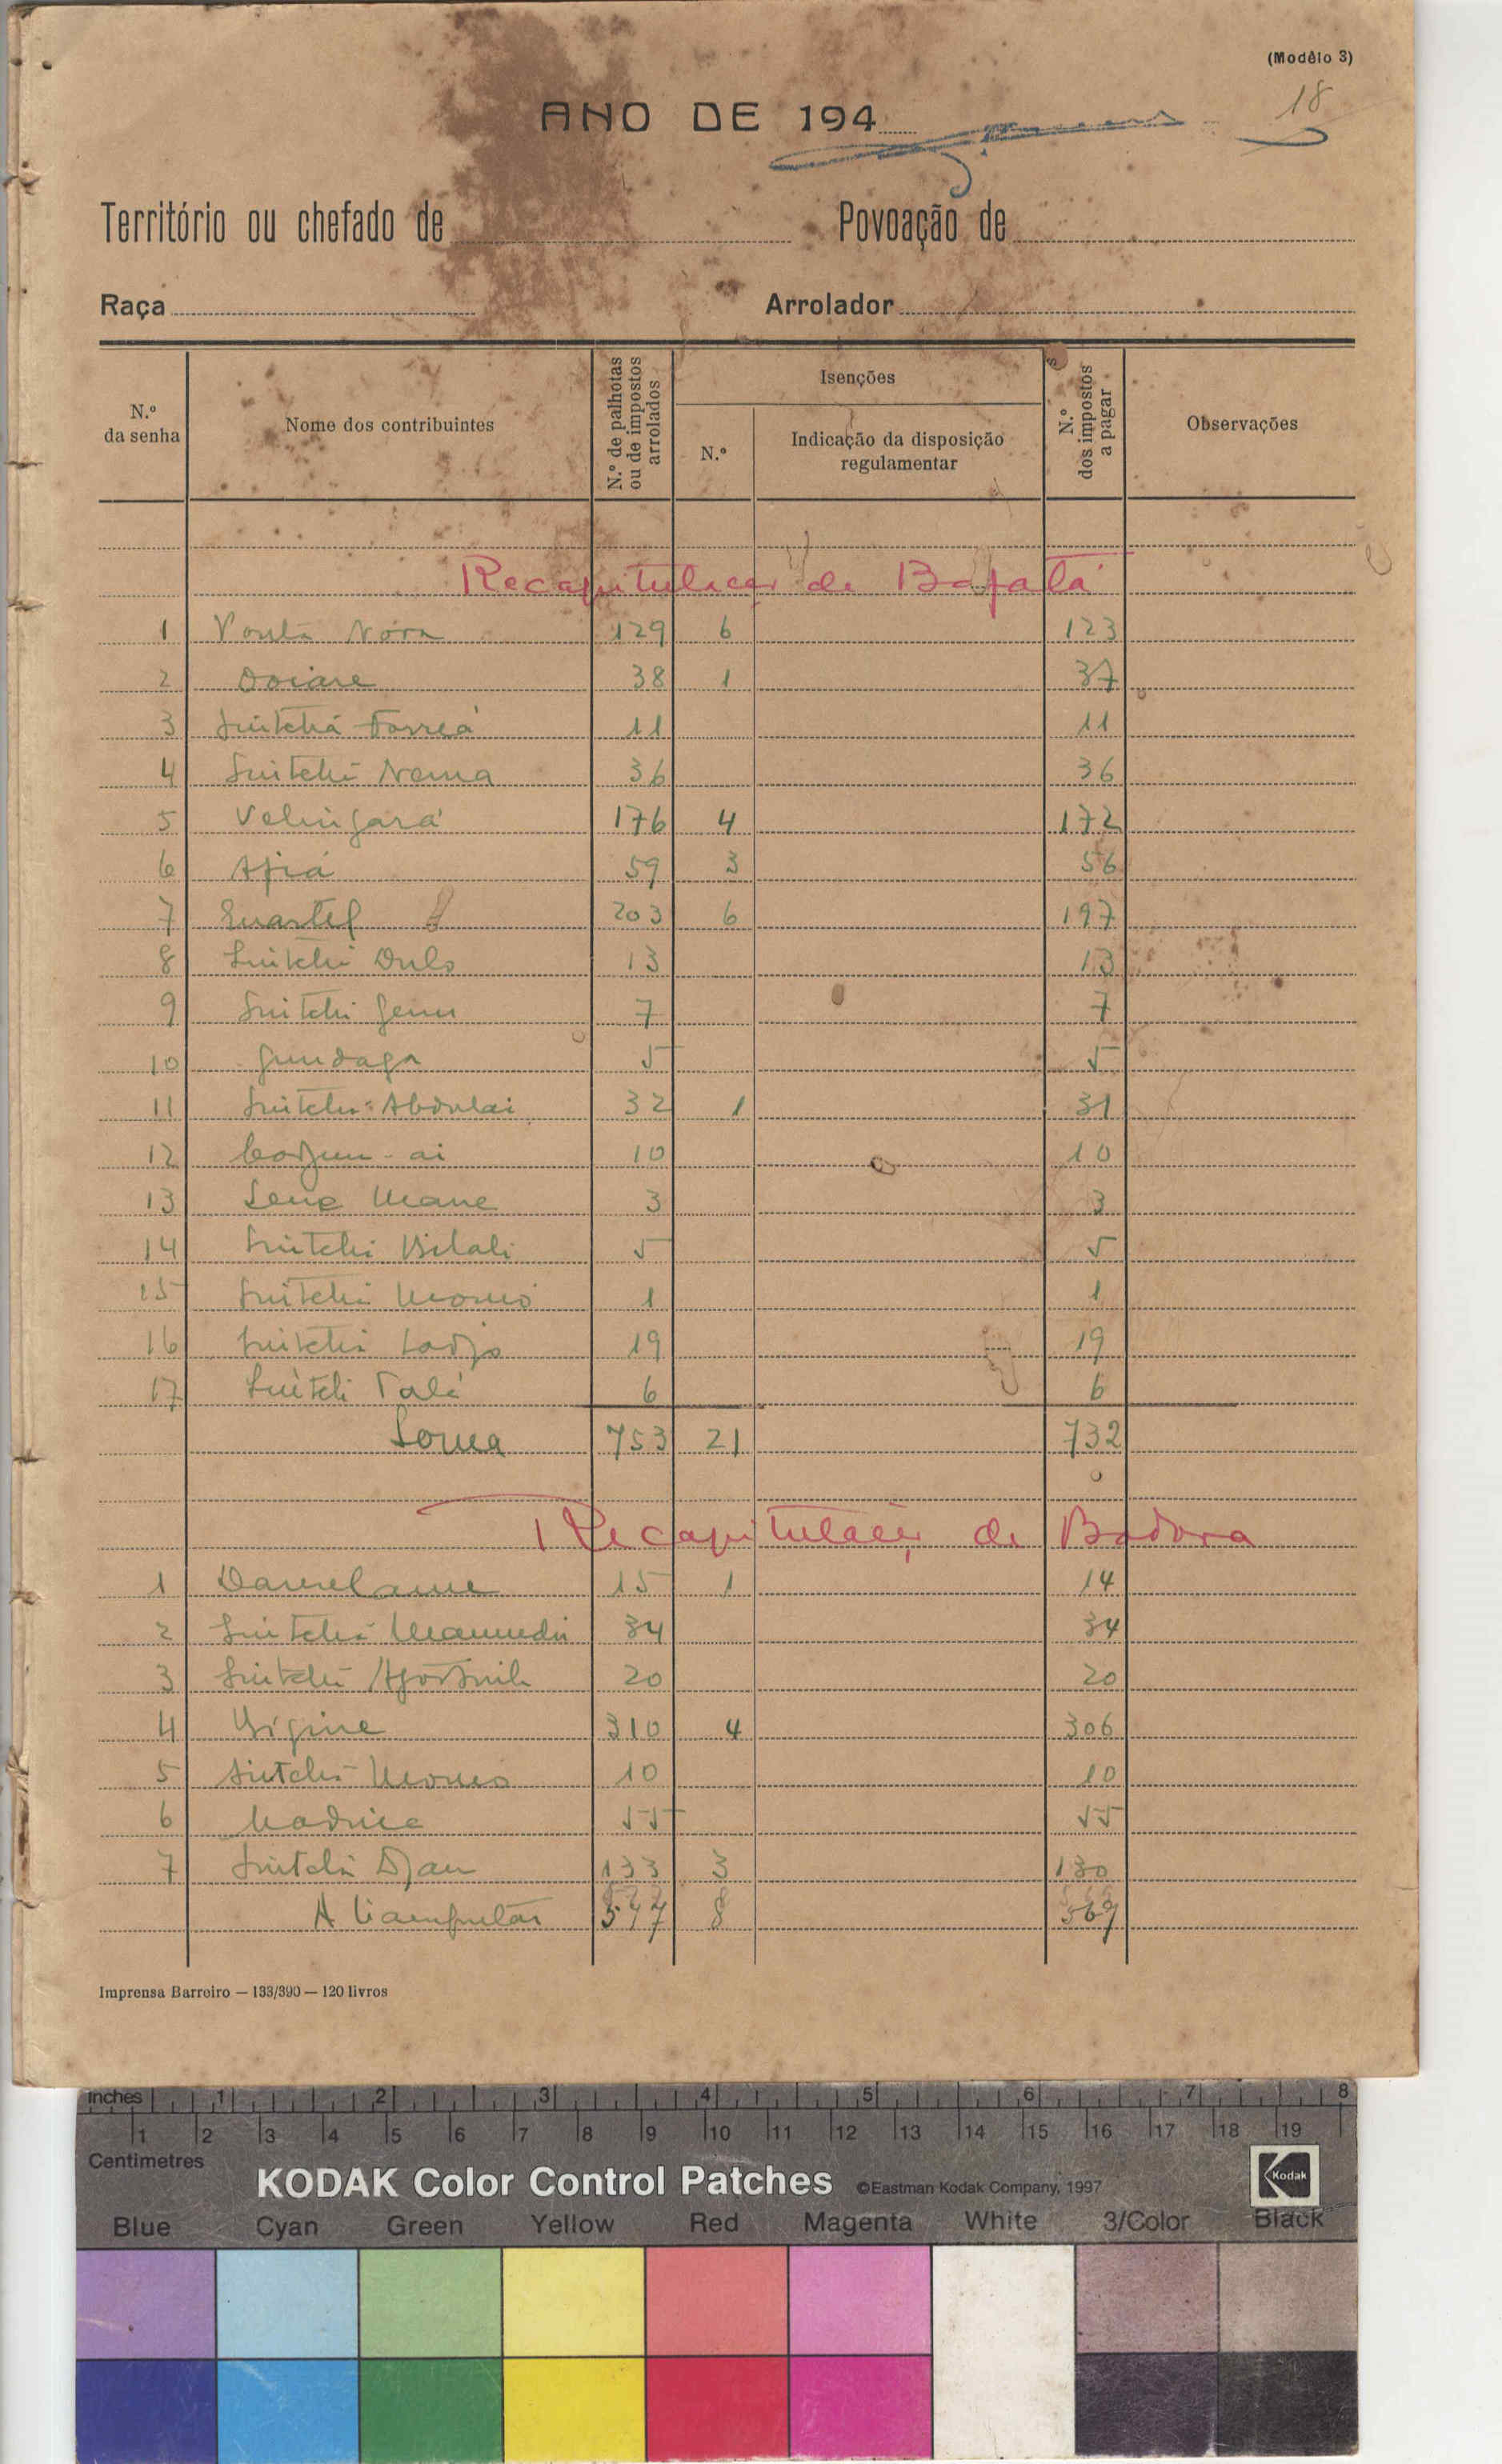 (Modêlo 3)
18
ANO DE 194
Território ou chefado de Povoação de
Raça Arrolador
N.º da senha
Nome dos contribuintes
N.º de palhotas ou de impostos arrolados
Isenções
N.º
Indicação da disposição regulamentar
N.º dos impostos a pagar
Observações
Recapitulação de Bafatá
1 Ponta Nova 129 6 123
2 38 1 37
3 11 11
4 Sintchã Nema 36 36
5 Velingará 176 4 172
6 Afiá 59 3 56
7 203 6 197
8 Sintchã 13 13
9 Sintchã 7 7
10 5 5
11 Sintchã Abdulai 32 1 31
12 10 10
13 Mane 3 3
14 Sintchã Bilali 5 5
15 Sintchã Momo 1 1
16 Sintchã 19 19
17 Sintchã 6 6
Soma 753 21 732
Recapitulação de Badora
1 15 1 14
2 Sintchã Mamudu 34 34
3 Sintchã 20 20
4 310 4 306
5 Sintchã Momo 10 10
6 Madina 55 55
7 Sintchã Djau 133 3 130
A transportar 577 8 569
Imprensa Barreiro — 133/390 — 120 livros
inches 1 2 3 4 5 6 7 8
1 2 3 4 5 6 7 8 9 10 11 12 13 14 15 16 17 18 19
Centimetres
KODAK Color Control Patches ©Eastman Kodak Company, 1997 Kodak
Blue Cyan Green Yellow Red Magenta White 3/Color Black